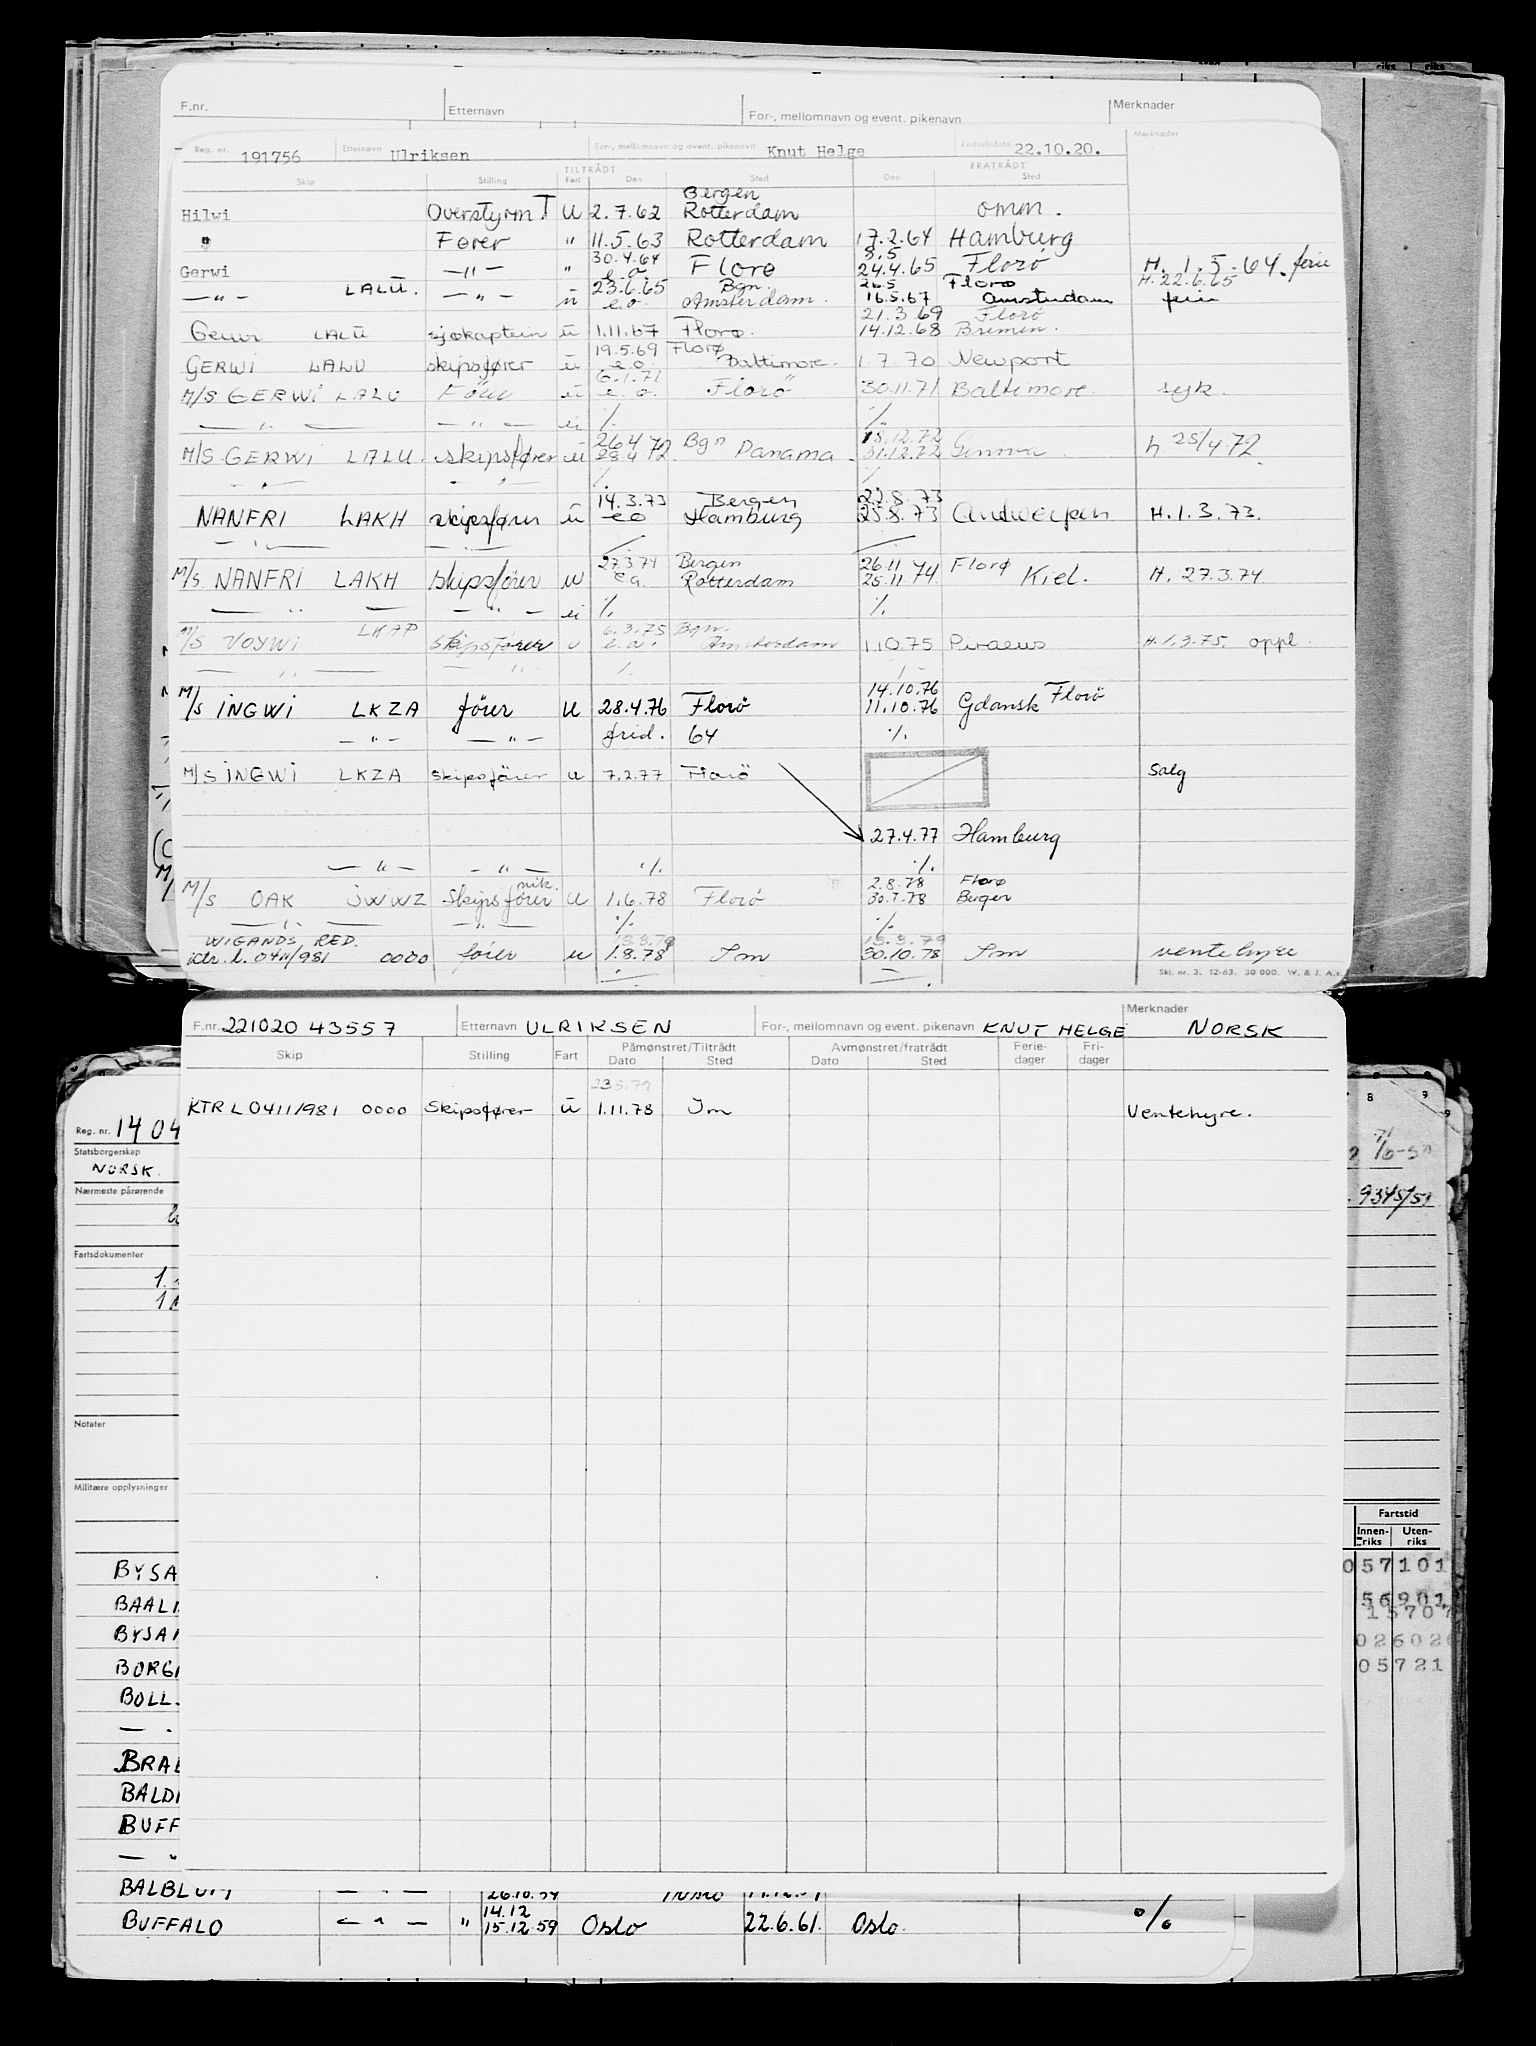 F.nr. Etternavn For-, mellomnavn og event. pikenavn Merknader
Reg. nr. 191756 Etternavn Ulriksen For-, mellomnavn og event. pikenavn Knut Helge Fødselsdato 22.10.20. Merknader
TILTRÅDT FRATRÅDT
Skip Stilling Fart Den Sted Den Sted
Bergen
Hilwi Overstyrm T U 2.7.62 Rotterdam omm.
" Fører " 11.5.63 Rotterdam 17.2.64 Hamburg
30.4.64 8.5
Gerwi —"— " e.o. Florø 24.4.65 Florø H. 1.5.64. ferie
23.6.65 Bgn. 26.5 Florø H. 22.6.65
—"— LALU. —"— ū e.o. Amsterdam. 16.5.67 Amsterdam ferie
21.3.69 Florø
Gerwi LALU sjøkaptein ū 1.11.67 Florø. 14.12.68 Bremen.
19.5.69 Florø
GERWI LALU skipsfører ū e.o. Baltimore. 1.7.70 Newport
6.1.71
M/S GERWI LALU Förer ū e.o. Florö 30.11.71 Baltimore. sejk.
—"— —"— ei % %
26.4.72 Bgn 18.12.72
M/S. GERWI LALU. skipsfører ū 28.4.72. Panama 31.12.72 h. 25/4.72.
—"— —"— % %
14.3.73 Bergen 22.8.73
NANFRI LAKH skipsfører ū eo Hamburg 25.8.73 Antwerpen H.1.3.73.
—"— —"—
27.3.74 Bergen 26.11 Florø
M/S. NANFRI LAKH skipsfører u e.a. Rotterdam 25.11.74 Kiel. H. 27.3.74.
—"— —"— ei % %
LKAP 6.3.75 Bgn.
M/S VOYWI skipsfører u e.a. Amsterdam 1.10.75 Piraeus H.1.3.75. oppl.
—"— —"— % %
14.10.76 Florö
M/S INGWI LKZA förer U 28.4.76 Florö 11.10.76 Gdansk
—"— —"— frid. 64 %
M/S INGWI LKZA skipsfører u 7.2.77 Florö Salg
27.4.77 Hamburg
—"— —"— % %
nik. 2.8.78 Florø
M/S OAK JWWZ Skipsfører U 1.6.78 Florö 30.7.78 Bergen
—"— —"— % %
WIGANDS RED.
ktr. l. 0411/981 0000 fører u 1.8.78 Im 30.10.78 Im ventehyre
Skj. nr. 3. 12-63. 30 000. W. & J. A.s
F.nr. 221020 43557 Etternavn ULRIKSEN For-, mellomnavn og event. pikenavn KNUT HELGE Merknader NORSK
Skip Stilling Fart Påmønstret/Tiltrådt Avmønstret/fratrådt Ferie- Fri-
Dato Sted Dato Sted dager dager
23.5.79
KTR L 0411/981 0000 Skipsfører ū 1.11.78 Im Ventehyre.
Reg. nr. 1404
Statsborgerskap
NORSK.
Nærmeste pårørende
9345/59
Fartsdokumenter
Notater
Militære opplysninger
Fartstid
Innen- Uten-
riks riks
BYSA 057101
BAALI 56901
15707
BYSA 02602
BORG 05721
BOLL
— "
BRAL
BALDI
BUFF
— "
BALBLOM —"— 26.10.59
14.12
BUFFALO —"— " 15.12.59 Oslo 22.6.61. Oslo. %